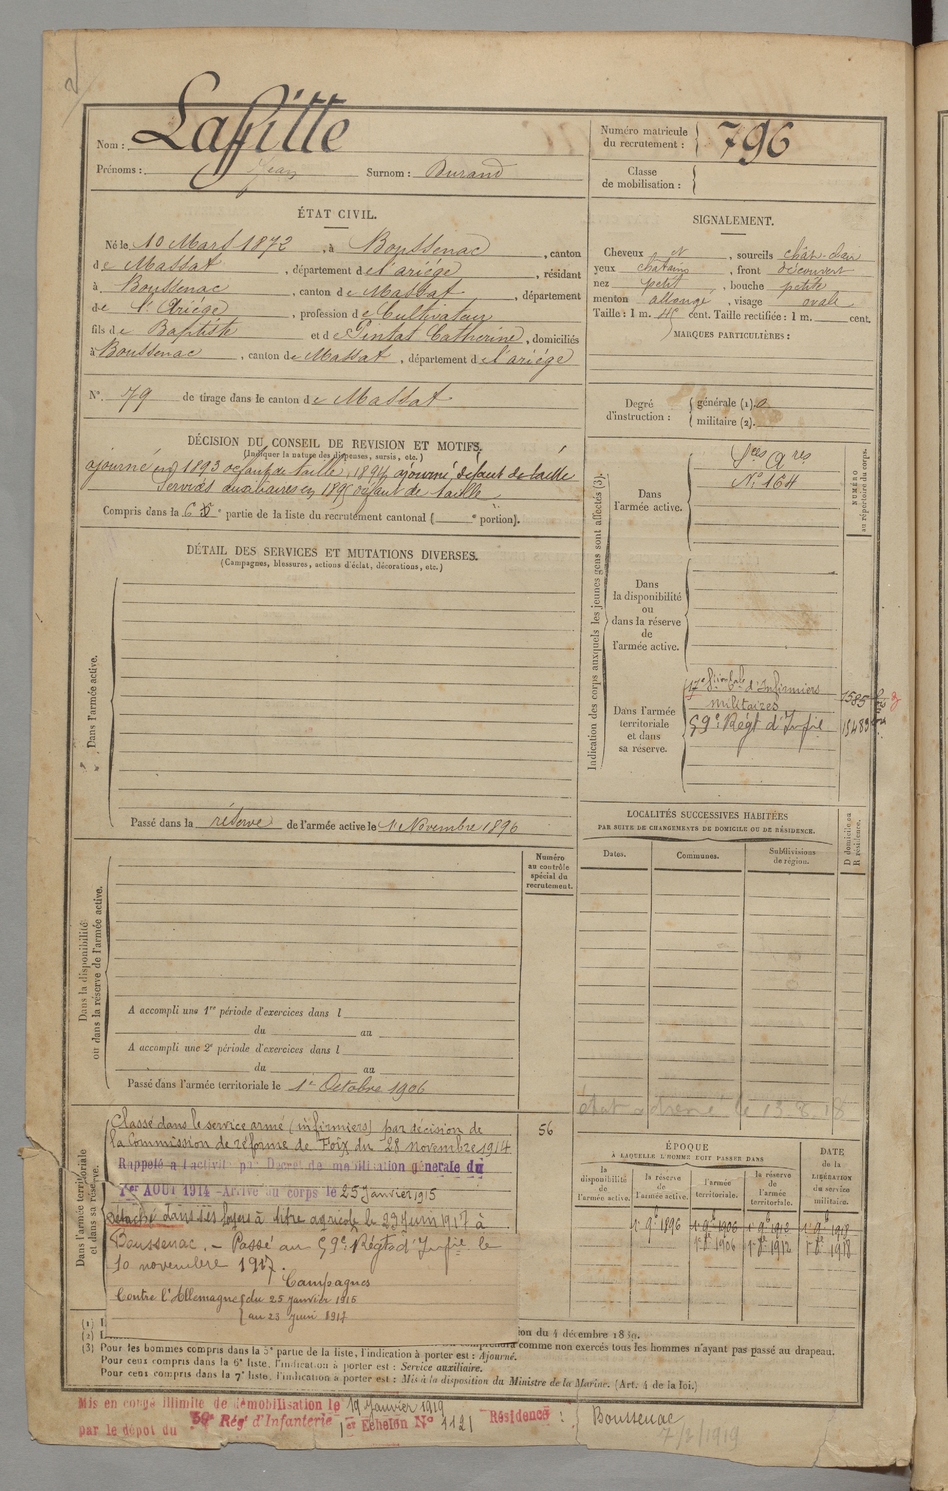 Nom : Laffitte
Prénoms : Jean Surnom : Durand
Numéro matricule du recrutement : 796
Classe de mobilisation :
ÉTAT CIVIL.
Né le 10 Mars 1872, à Boussenac, canton
de Massat, département de l'ariége, résidant
à Boussenac, canton de Massat, département
de l'Ariége, profession de Cultivateur
fils de Baptiste et de Pintat Catherine, domiciliés
à Boussenac, canton de Massat, département de l'ariége
N° 79 de tirage dans le canton de Massat
SIGNALEMENT.
Cheveux et, sourcils chât-
yeux chatains, front découvert
nez petit, bouche petite
menton allongé, visage ovale
Taille : 1 m. 45 cent. Taille rectifiée : 1 m. cent.
MARQUES PARTICULIÈRES :
Degré d'instruction : générale (1). 0
militaire (2).
DÉCISION DU CONSEIL DE REVISION ET MOTIFS.
(Indiquer la nature des dispenses, sursis, etc.)
ajourné en 1893 défaut de taille, 1894 ajourné défaut de taille
Services auxiliaires en 1895 défaut de taille
Compris dans la 6 e partie de la liste du recrutement cantonal ( e portion).
DÉTAIL DES SERVICES ET MUTATIONS DIVERSES.
(Campagnes, blessures, actions d'éclat, décorations, etc.)
Dans l'armée active.
Passé dans la réserve de l'armée active le 1er Novembre 1896
Indication des corps auxquels les jeunes gens sont affectés (3).
NUMÉRO au répertoire du corps.
Dans l'armée active.
Sces Ares
N° 164
Dans la disponibilité ou dans la réserve de l'armée active.
Dans l'armée territoriale et dans sa réserve.
17e d'Infirmiers
militaires
59e Régt d'Infie
LOCALITÉS SUCCESSIVES HABITÉES
PAR SUITE DE CHANGEMENTS DE DOMICILE OU DE RÉSIDENCE.
Dates. Communes. Subdivisions de région. D domicile ou R résidence.
Numéro au contrôle spécial du recrutement.
Dans la disponibilité ou dans la réserve de l'armée active.
A accompli une 1re période d'exercices dans l
du au
A accompli une 2e période d'exercices dans l
du au
Passé dans l'armée territoriale le 1er Octobre 1906
Dans l'armée territoriale et dans sa réserve.
Classé dans le service armé (infirmiers) par décision de
la Commission de réforme de Foix du 28 novembre 1914
56
Rappelé à l'activité par Décret de mobilisation générale du
1er AOUT 1914 - Arrivé au corps le 25 Janvier 1915
détaché dans ses foyers à titre agricole le 23 Juin 1917 à
Boussenac. - Passé au 59e Régt d'Infie le
10 novembre 1917.
Campagnes
Contre l'Allemagne du 25 janvier 1915
au 23 Juin 1917
état adressé le 13.8.18
ÉPOQUE
À LAQUELLE L'HOMME DOIT PASSER DANS
la disponibilité de l'armée active.
la réserve de l'armée active.
l'armée territoriale.
la réserve de l'armée territoriale.
DATE de la LIBÉRATION du service militaire.
1er 9bre 1896 1er 9bre 1906 1er 9bre 1912 1er 9bre 1918
1er 8bre 1906 1er 8bre 1912 1er 8bre 1918
(1)
(2)
(3) Pour les hommes compris dans la 5e partie de la liste, l'indication à porter est : Ajourné.
Pour ceux compris dans la 6e liste, l'indication à porter est : Service auxiliaire.
Pour ceux compris dans la 7e liste, l'indication à porter est : Mis à la disposition du Ministre de la Marine. (Art. 4 de la loi.)
comme non exercés tous les hommes n'ayant pas passé au drapeau.
Mis en congé illimité de démobilisation le 19 Janvier 1919
par le dépot du 59e Rég' d'Infanterie 1er Echelon N° 1121 Résidence : Boussenac
7/2/1919